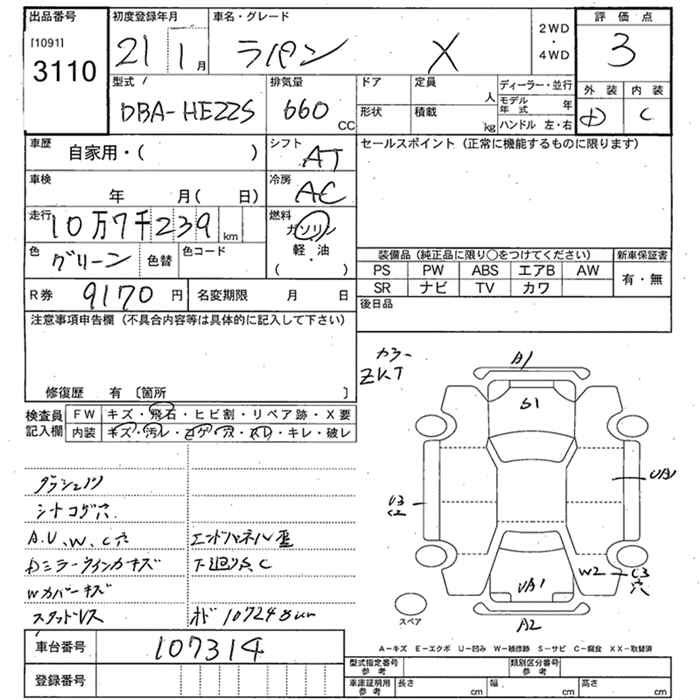 出品番号
[1091]
3110
初度登録年月
21 1月
車名・グレード
ラパン X
2WD
・
4WD
評価点
3
外装 内装
D C
型式
DBA-HE22S
排気量
660 CC
ドア
形状
定員 人
積載 kg
ディーラー・並行
モデル年式 年
ハンドル 左・右
車歴
自家用・( )
シフト
AT
セールスポイント(正常に機能するものに限ります)
車検
年 月( 日)
冷房
AC
走行
10万7千239 km
燃料
ガソリン
軽油
( ・ )
色
グリーン 色替
色コード
装備品(純正品に限り○をつけてください)
新車保証書
PS PW ABS エアB AW
SR ナビ TV カワ
有・無
R券 9170 円
名変期限 月 日
後日品
注意事項申告欄(不具合内容等は具体的に記入して下さい)
修復歴 有 〔箇所 〕
カラー
ZKT
検査員
記入欄
FW キズ・飛石・ヒビ割・リペア跡・X要
内装 キズ・汚レ・コゲ・穴・スレ・キレ・破レ
シートコゲ穴
A.U.W.C穴
エンドパネル歪
Dミラーウィンカキズ
下廻り点C
Wカバーキズ
スタッドレス
ODO 107248km
A1
S1
U3
C2
UA1
W2
C3
穴
UA1
A2
スペア
A-キズ E-エクボ U-凹み W-補修跡 S-サビ C-腐食 XX-取替済
車台番号
107314
登録番号
型式指定番号
参考
類別区分番号
参考
車庫証明用
参考
長さ cm
幅 cm
高さ cm